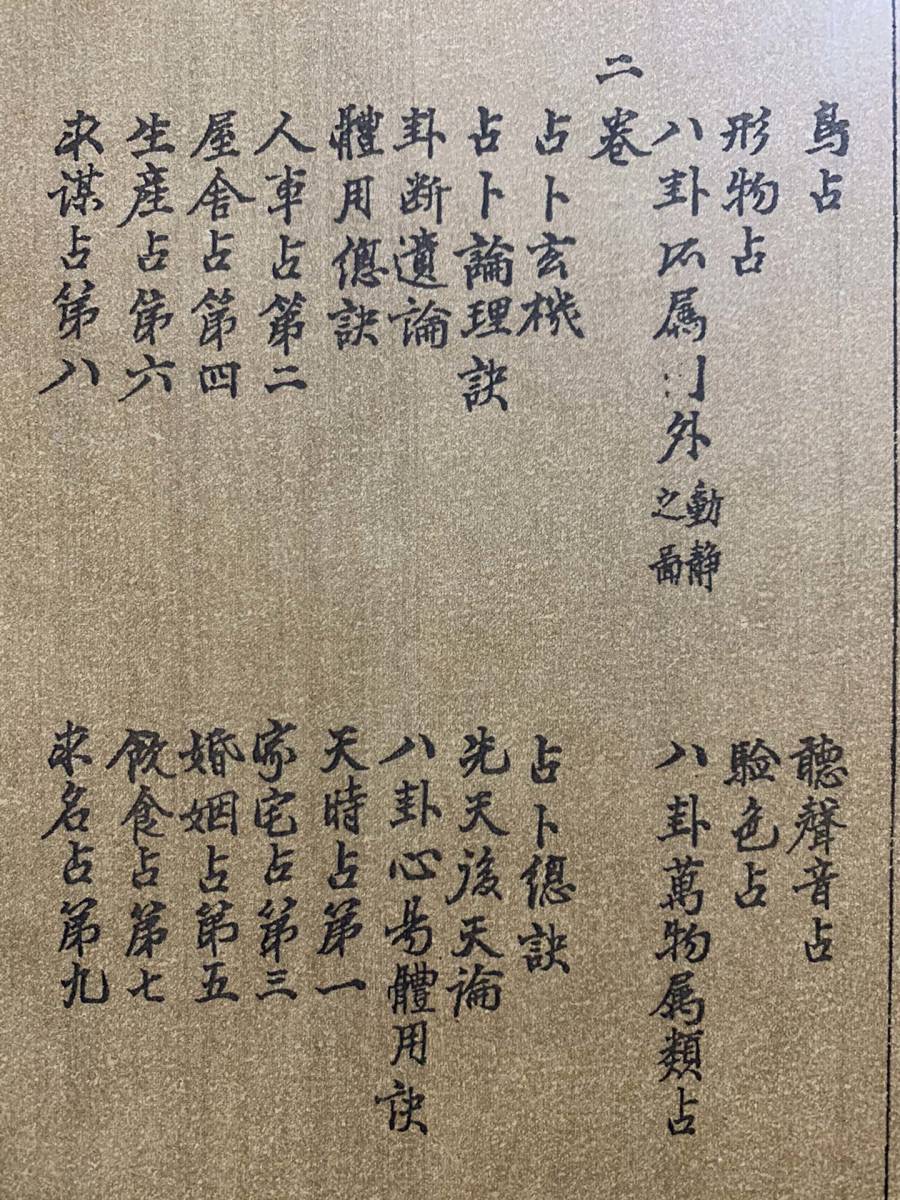 鳥占
聽聲音占
形物占
騐色占
八卦所属門外動静之圖
八卦萬物属類占
二卷
占卜玄機
占卜總訣
占卜論理訣
先天後天論
卦断遺論
八卦心易體用訣
體用總訣
天時占第一
人事占第二
家宅占第三
屋舍占第四
婚姻占第五
生產占第六
飲食占第七
求謀占第八
求名占第九